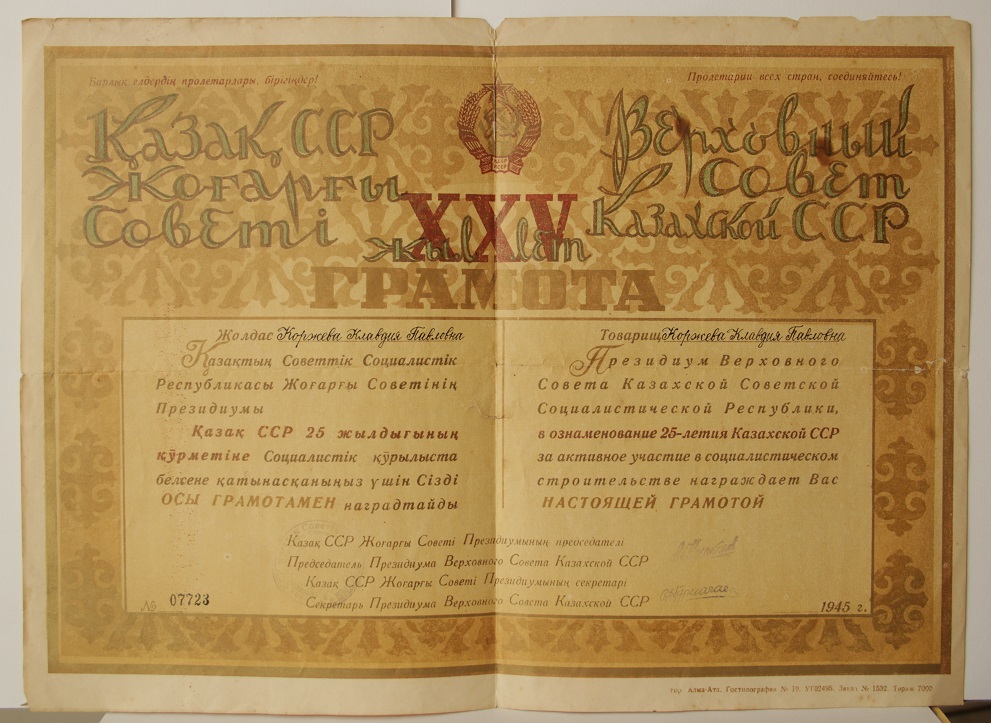 Барлық елдердің пролетарлары, бірігіңдер!
Пролетарии всех стран, соединяйтесь!
Қазақ ССР
Жоғарғы
Советі
Верховный
Совет
Казахской ССР
XXV
жыл лет
ГРАМОТА
Жолдас Коржева Клавдия Павловна
Қазақтың Советтік Социалистік
Республикасы Жоғарғы Советінің
Президиумы
Қазақ ССР 25 жылдығының
құрметіне Социалистік құрылыста
белсене қатынасқаныңыз үшін Сізді
ОСЫ ГРАМОТАМЕН наградтайды
Товарищ Коржева Клавдия Павловна
Президиум Верховного
Совета Казахской Советской
Социалистической Республики,
в ознаменование 25-летия Казахской ССР
за активное участие в социалистическом
строительстве награждает Вас
НАСТОЯЩЕЙ ГРАМОТОЙ
Қазақ ССР Жоғарғы Советі Президиумының председателі
Председатель Президиума Верховного Совета Казахской ССР
Қазақ ССР Жоғарғы Советі Президиумының секретарі
Секретарь Президиума Верховного Совета Казахской ССР
№ 07723
1945 г.
гор. Алма-Ата. Гостипография № 18. УГ02495. Заказ № 1532. Тираж 7000